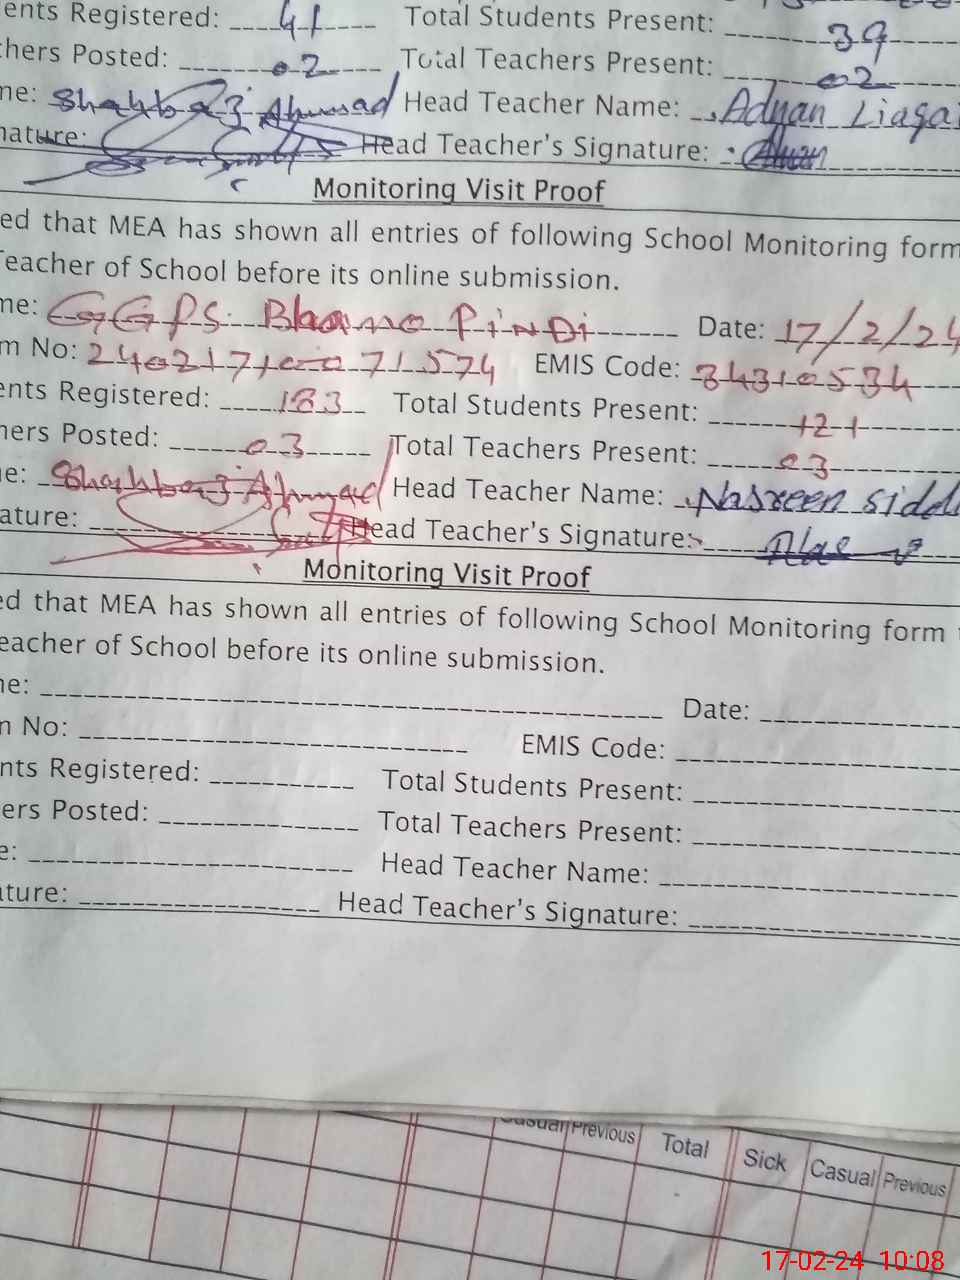 ents Registered: 41 Total Students Present: 39
hers Posted: 02 Total Teachers Present: 02
me: Shahbaz Ahmad Head Teacher Name: Adnan Liaqa
nature: Head Teacher's Signature:
Monitoring Visit Proof
ed that MEA has shown all entries of following School Monitoring form
Teacher of School before its online submission.
me: GGPS Bhano PiNDi Date: 17/2/24
m No: 240217100071574 EMIS Code: 34310534
ents Registered: 183 Total Students Present: 121
hers Posted: 03 Total Teachers Present: 03
e: Shahbaz Ahmad Head Teacher Name: Nasreen sidd
ature: Head Teacher's Signature:
Monitoring Visit Proof
ed that MEA has shown all entries of following School Monitoring form
eacher of School before its online submission.
ne: Date:
m No: EMIS Code:
nts Registered: Total Students Present:
ers Posted: Total Teachers Present:
e: Head Teacher Name:
ature: Head Teacher's Signature:
Casual Previous Total Sick Casual Previous
17-02-24 10:08